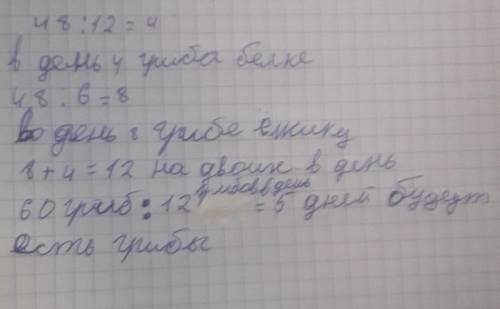 48:12=4
в день 4 гриба белке
48:6=8
во день 8 грибе ёжику
8+4=12 на двоих в день
60 гриб:12 грибов в день =5 дней будут
есть грибы